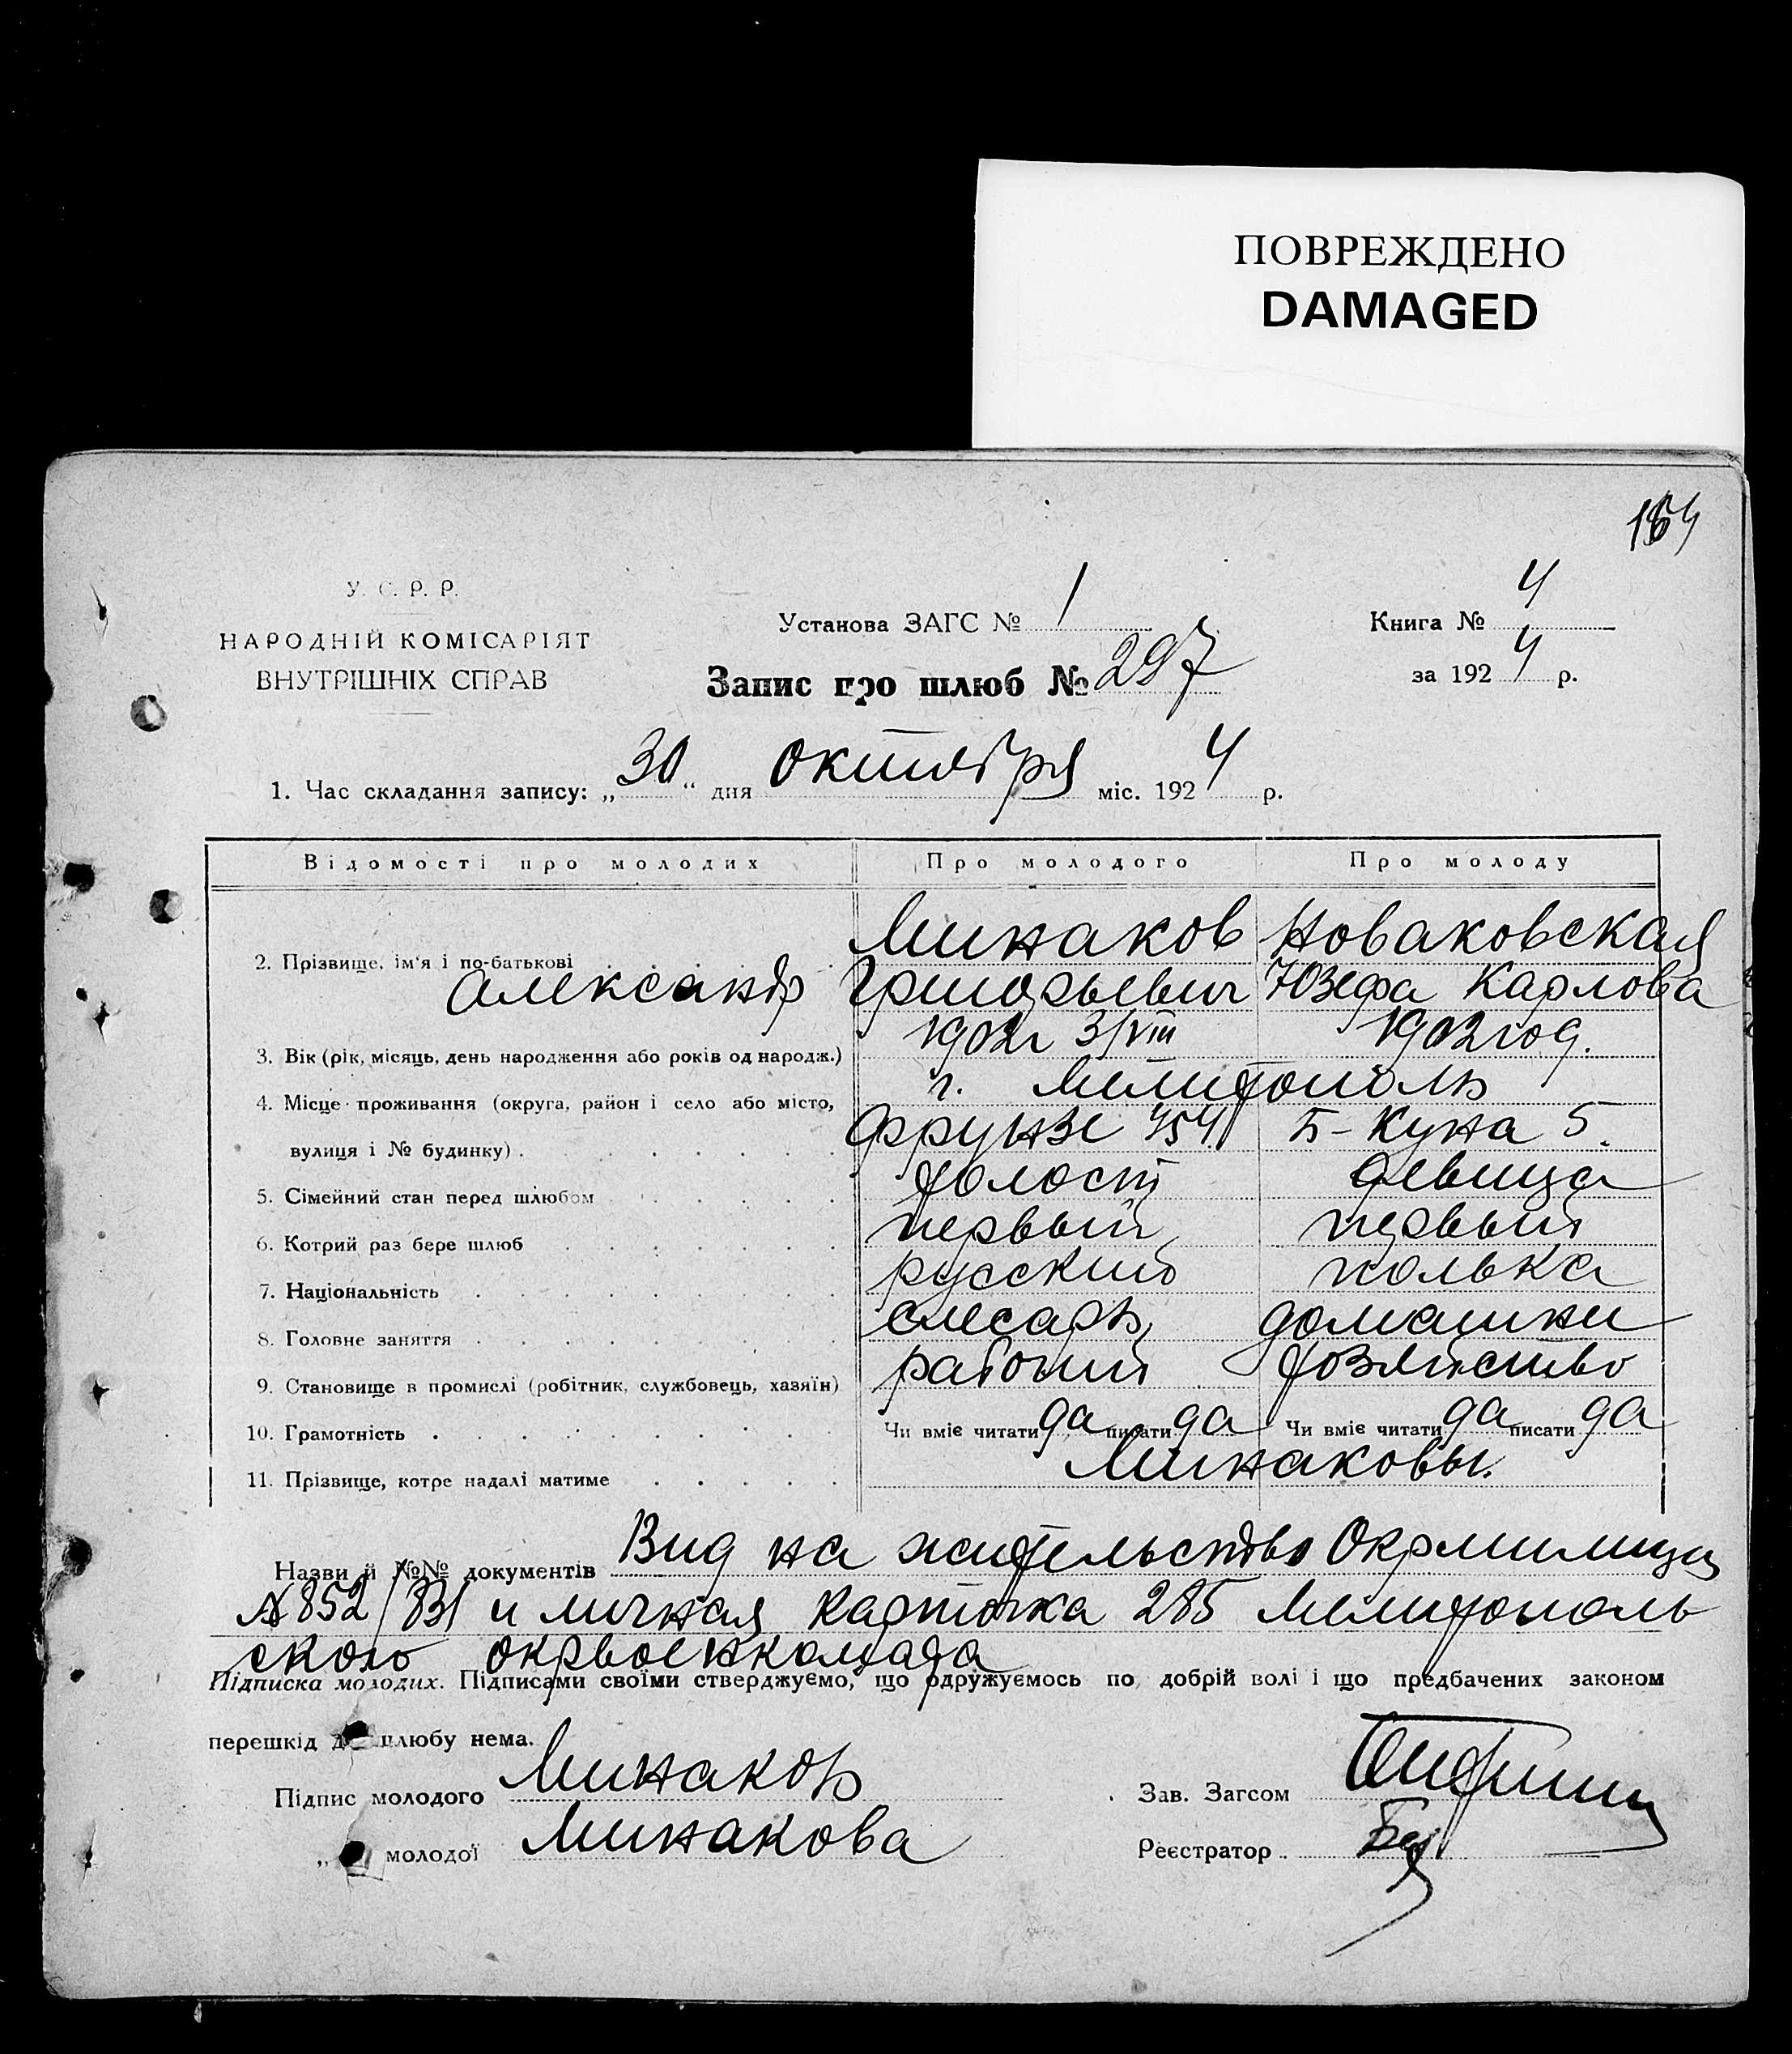 ПОВРЕЖДЕНО
DAMAGED
164
У. С. Р. Р.
НАРОДНІЙ КОМІСАРІЯТ
ВНУТРІШНІХ СПРАВ
Установа ЗАГС № 1
Запис про шлюб № 297
Книга № 4
за 1924 р.
1. Час складання запису: „30“ дня октября міс. 1924 р.
Відомості про молодих Про молодого Про молоду
2. Прізвище, ім'я і по-батькові Минаков Новаковская
Александр Григорьевич Юзефа Карлова
3. Вік (рік, місяць, день народження або років од народж.) 1902г 3/VIII 1902 год.
4. Місце проживання (округа, район і село або місто, г. Мелитополь
вулиця і № будинку) Фрунзе 454 Б-Куна 5.
5. Сімейний стан перед шлюбом холост девица
6. Котрий раз бере шлюб первый первый
7. Національність русский полька
8. Головне заняття слесарь домашни
9. Становище в промислі (робітник, службовець, хазяїн) рабочий хозяйство
10. Грамотність Чи вміє читати да писати да Чи вміє читати да писати да
11. Прізвище, котре надалі матиме Минаковы.
Назви й №№ документів Вид на жительство Окрмилиции
№ 852/831 и личная карточка 285 Мелитополь
ского окрвоенкомада
Підписка молодих. Підписами своїми стверджуємо, що одружуємось по добрій волі і що предбачених законом
перешкід до шлюбу нема.
Підпис молодого Минаковъ
Зав. Загсом
„ молодої Минакова
Реєстратор